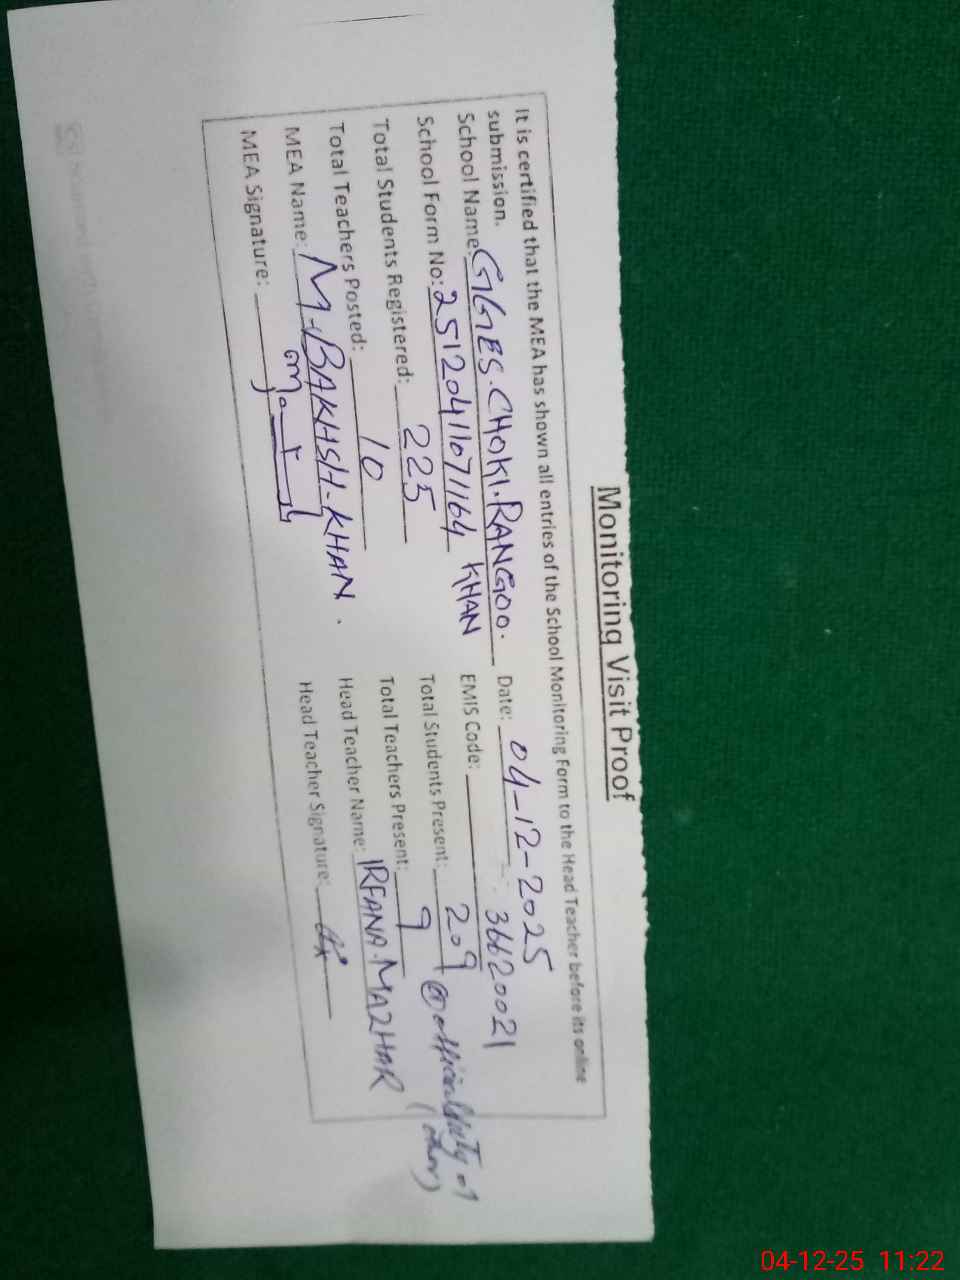 Monitoring Visit Proof
It is certified that the MEA has shown all entries of the School Monitoring Form to the Head Teacher before its online
submission.
School Name: GGES.CHOKI.RANGOO. KHAN Date: 04-12-2025
School Form No: 25120411071164 EMIS Code: 36620021
Total Students Registered: 225 Total Students Present: 209
Total Teachers Posted: 10 Total Teachers Present: 9 @official duty 01 (other)
MEA Name: M.BAKHSH.KHAN. Head Teacher Name: IRFANA.MAZHAR
MEA Signature: Head Teacher Signature:
04-12-25 11:22